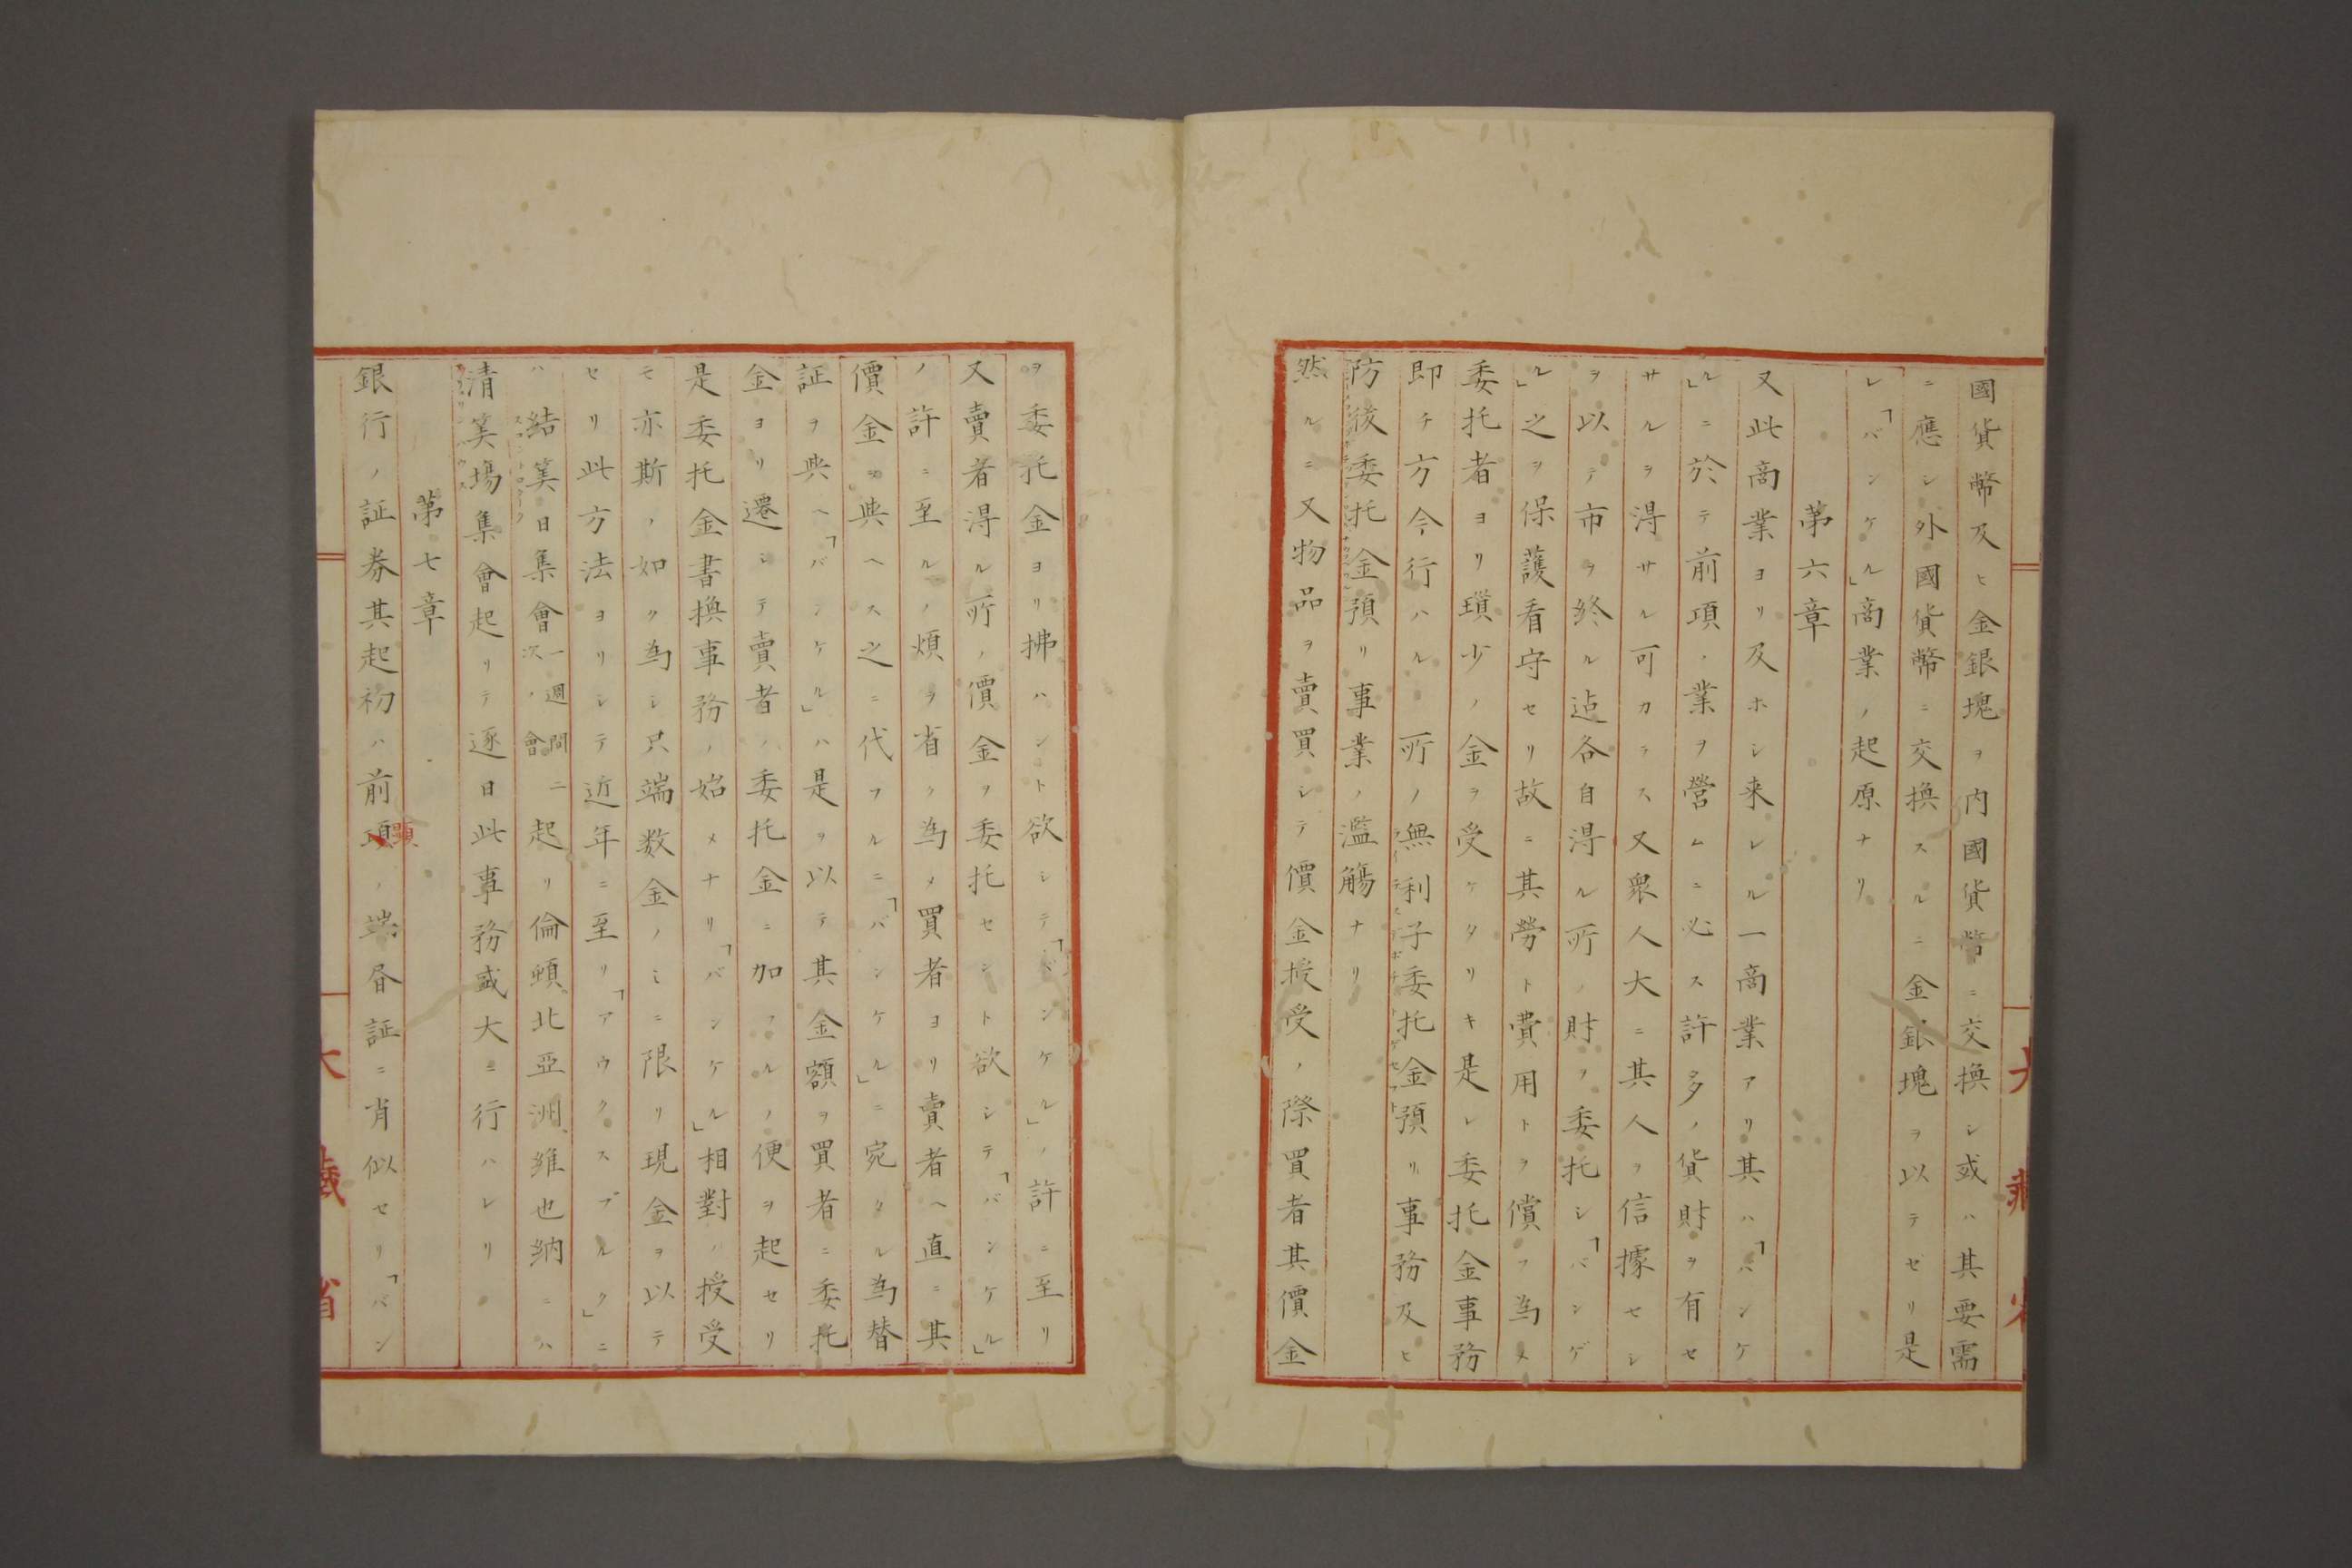 國貨幣及ヒ金銀塊ヲ内國貨幣ニ交換シ或ハ其要需
ニ應シ外國貨幣ニ交換スルニ金銀塊ヲ以テセリ是
レ「バンケル」商業ノ起原ナリ
第六章
又此商業ヨリ及ホシ来レル一商業アリ其ハ「バンケ
ル」ニ於テ前項ノ業ヲ營ムニ必ス許多ノ貨財ヲ有セ
サルヲ得サル可カラス又衆人大ニ其人ヲ信據セシ
ヲ以テ市ヲ終ル迠各自得ル所ノ財ヲ委托シ「バンゲ
ル」之ヲ保護看守セリ故ニ其勞ト費用トヲ償フ為メ
委托者ヨリ瑣少ノ金ヲ受ケタリキ是レ委托金事務
即チ方今行ハル所ノ無利子委托金預リ事務及ヒ
防後委托金預リ事業ノ濫觴ナリ
然ルニ又物品ヲ賣買シテ價金授受ノ際買者其價金
ヲ委托金ヨリ拂ハント欲シテ「バンケル」ノ許ニ至リ
又賣者得ル所ノ價金ヲ委托セント欲シテ「バンケル」
ノ許ニ至ルノ煩ヲ省ク為メ買者ヨリ賣者ヘ直ニ其
價金ヲ典ヘス之ニ代フルニ「バンケル」ニ宛タル為替
証ヲ典ヘ「バンケル」ハ是ヲ以テ其金額ヲ買者ニ委托
金ヨリ遷シテ賣者ノ委托金ニ加フルノ便ヲ起セリ
是委托金書換事務ノ始メナリ「バンケル」相對ノ授受
モ亦斯ノ如ク為シ只端数金ノミニ限リ現金ヲ以テ
セリ此方法ヨリシテ近年ニ至リ「アウクスブルク」ニ
ハ結筭日集會一週間二次ノ會起リ倫頓北亞洲、維也納ニハ
清筭場集會起リテ逐日此事務盛大ニ行ハレリ
第七章
銀行ノ証券其起初ハ前項顕ノ端昏証ニ肖似セリ「バン
大藏省
大藏省